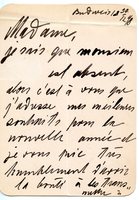 Budweis 30
Madame,
je sais que monsieur
est absent,
alors c'est à vous que
j'adresse mes meilleurs
souhaits pour la
nouvelle année et
je vous prie très
humblement d'avoir
la bonté de les trans
mettre à